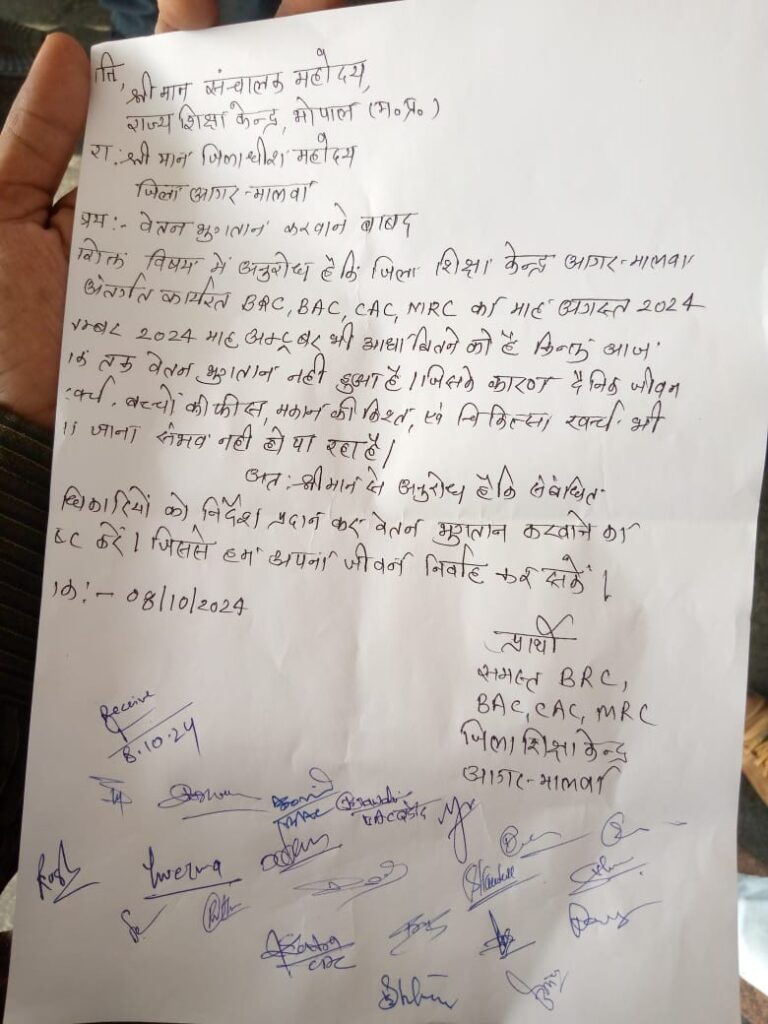 ति,
श्री मान संचालक महोदय,
राज्य शिक्षा केन्द्र, भोपाल (म.प्र.)
रा:श्री मान जिलाधीश महोदय
जिला आगर-मालवा
प्रय:- वेतन भुगतान करवाने बाबद
विषय में अनुरोध है कि जिला शिक्षा केन्द्र आगर-मालवा
अंतर्गत कार्यरत BRC, BAC, CAC, MRC का माह अगस्त 2024
म्बर 2024 माह अक्टूबर भी आधा बितने को है किन्तु आज
तक वेतन भुगतान नही हुआ है। जिसके कारण दैनिक जीवन
खर्च, बच्चों की फीस, मकान की किश्त, एवं चिकित्सा खर्च भी
जाना संभव नही हो पा रहा है।
अतः श्रीमान से अनुरोध है कि संबंधित
धिकारियों को निर्देश प्रदान कर वेतन भुगतान करवाने का
करें। जिससे हम अपना जीवन निर्वाह कर सकें।
क:- 08/10/2024
प्रार्थी
समस्त BRC,
BAC, CAC, MRC
जिला शिक्षा केन्द्र
आगर-मालवा
Receive
8.10.24